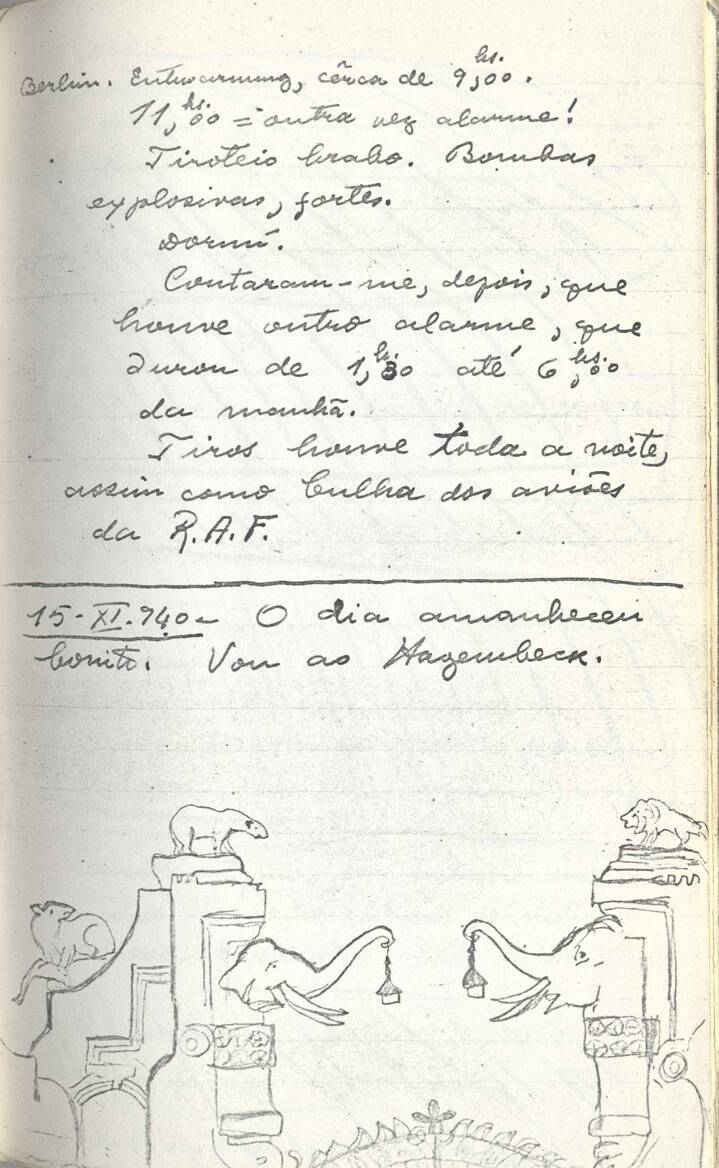 Berlin. Entwarnung, cêrca de 9,00 hs.
11,00 hs. = outra vez alarme!
Tiroteio brabo. Bombas
explosivas, fortes.
Dormí.
Contaram-me, depois, que
houve outro alarme, que
durou de 1,30 h. até 6,00 hs.
da manhã.
Tiros houve toda a noite,
assim como bulha dos aviões
da R.A.F.
15-XI.940- O dia amanheceu
bonito. Vou ao Hagembeck.